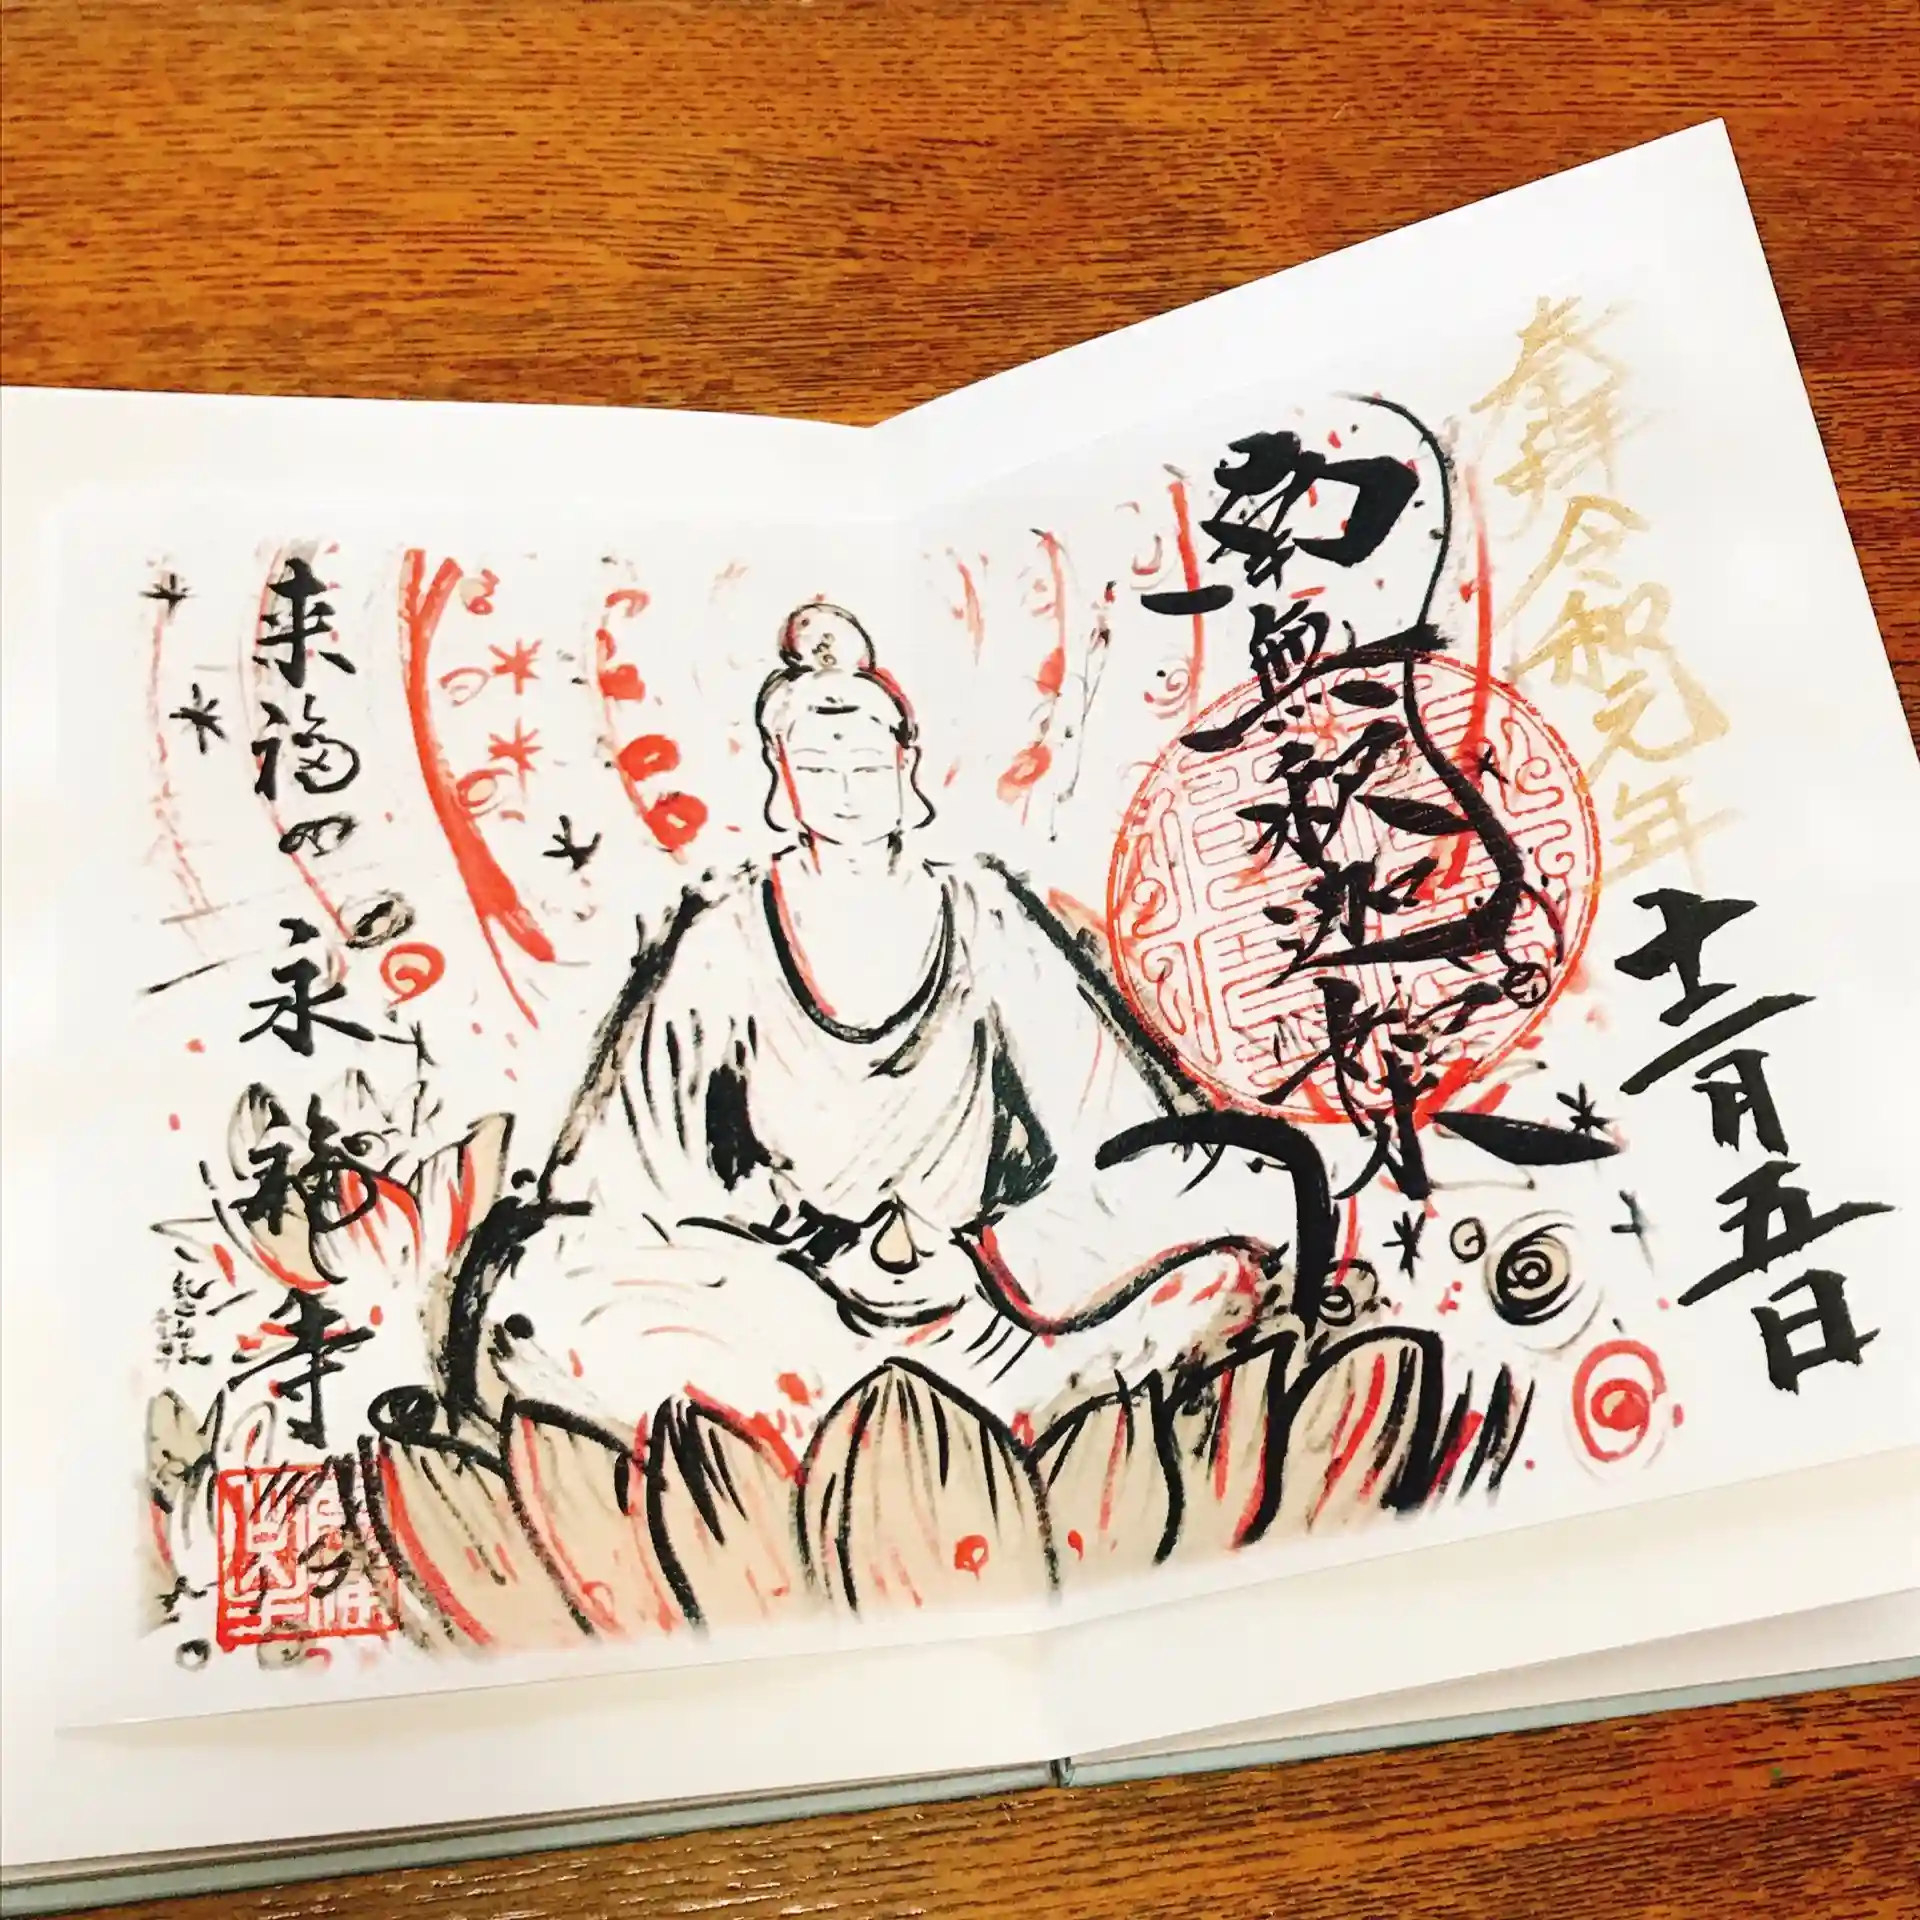 奉拝
令和元年
十二月五日
南無釈迦如来
来福の
永福寺